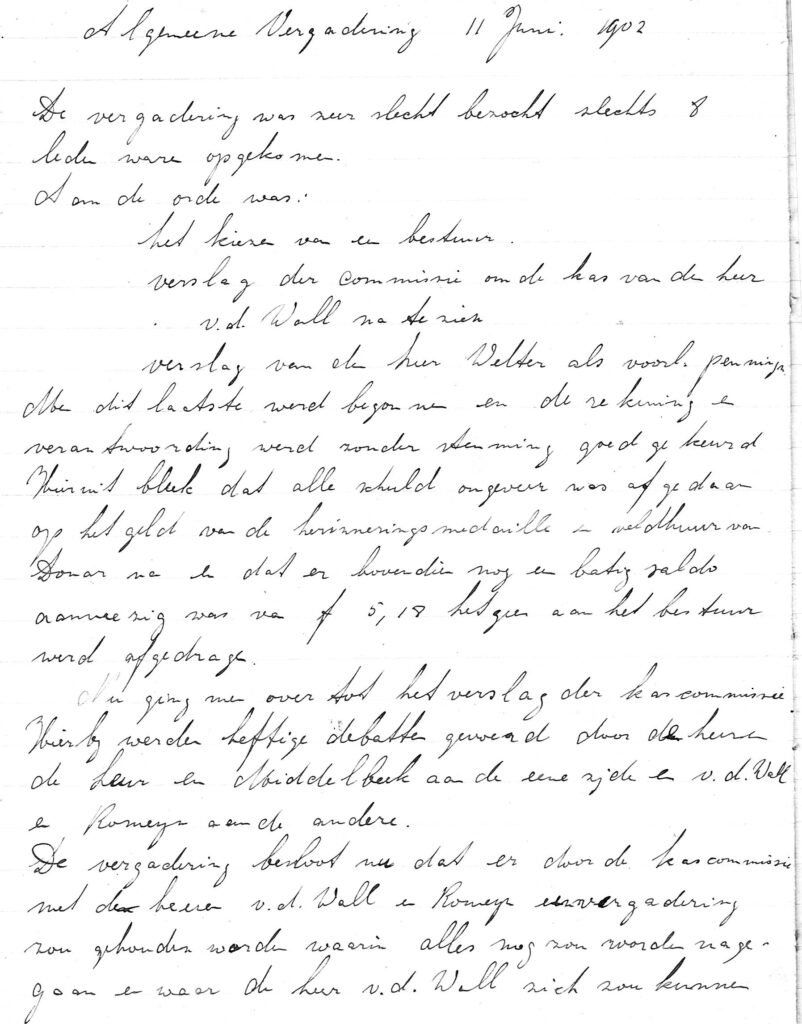 Algemeene Vergadering 11 Juni. 1902
De vergadering was zeer slecht bezocht slechts 8
leden ware opgekomen.
Aan de orde was:
het kiezen van een bestuur.
verslag der commissie om de kas van den heer
v.d. Wall na te zien
verslag van den heer Welter als voorl. penningm
Met dit laatste werd begonnen en de rekening en
verantwoording werd zonder stemming goedgekeurd
Hieruit bleek dat alle schuld ongeveer was afgedaan
op het geld van de herinneringsmedaille en veldhuur van
Donar na en dat er bovendien nog een batig saldo
aanwezig was van f 5,18 hetgeen aan het bestuur
werd afgedrage.
Nu ging men over tot het verslag der kascommissie
Hierbij werden heftige debatten gevoerd door de heeren
de Heur en Middelbeek aan de eene zijde en v.d. Wall
en Romeyn aan de andere.
De vergadering besloot nu dat er door de kascommissie
met de heeren v.d. Wall en Romeyn een vergadering
zou gehouden worden waarin alles nog zou worden nage-
gaan en waar de heer v.d. Wall zich zou kunnen